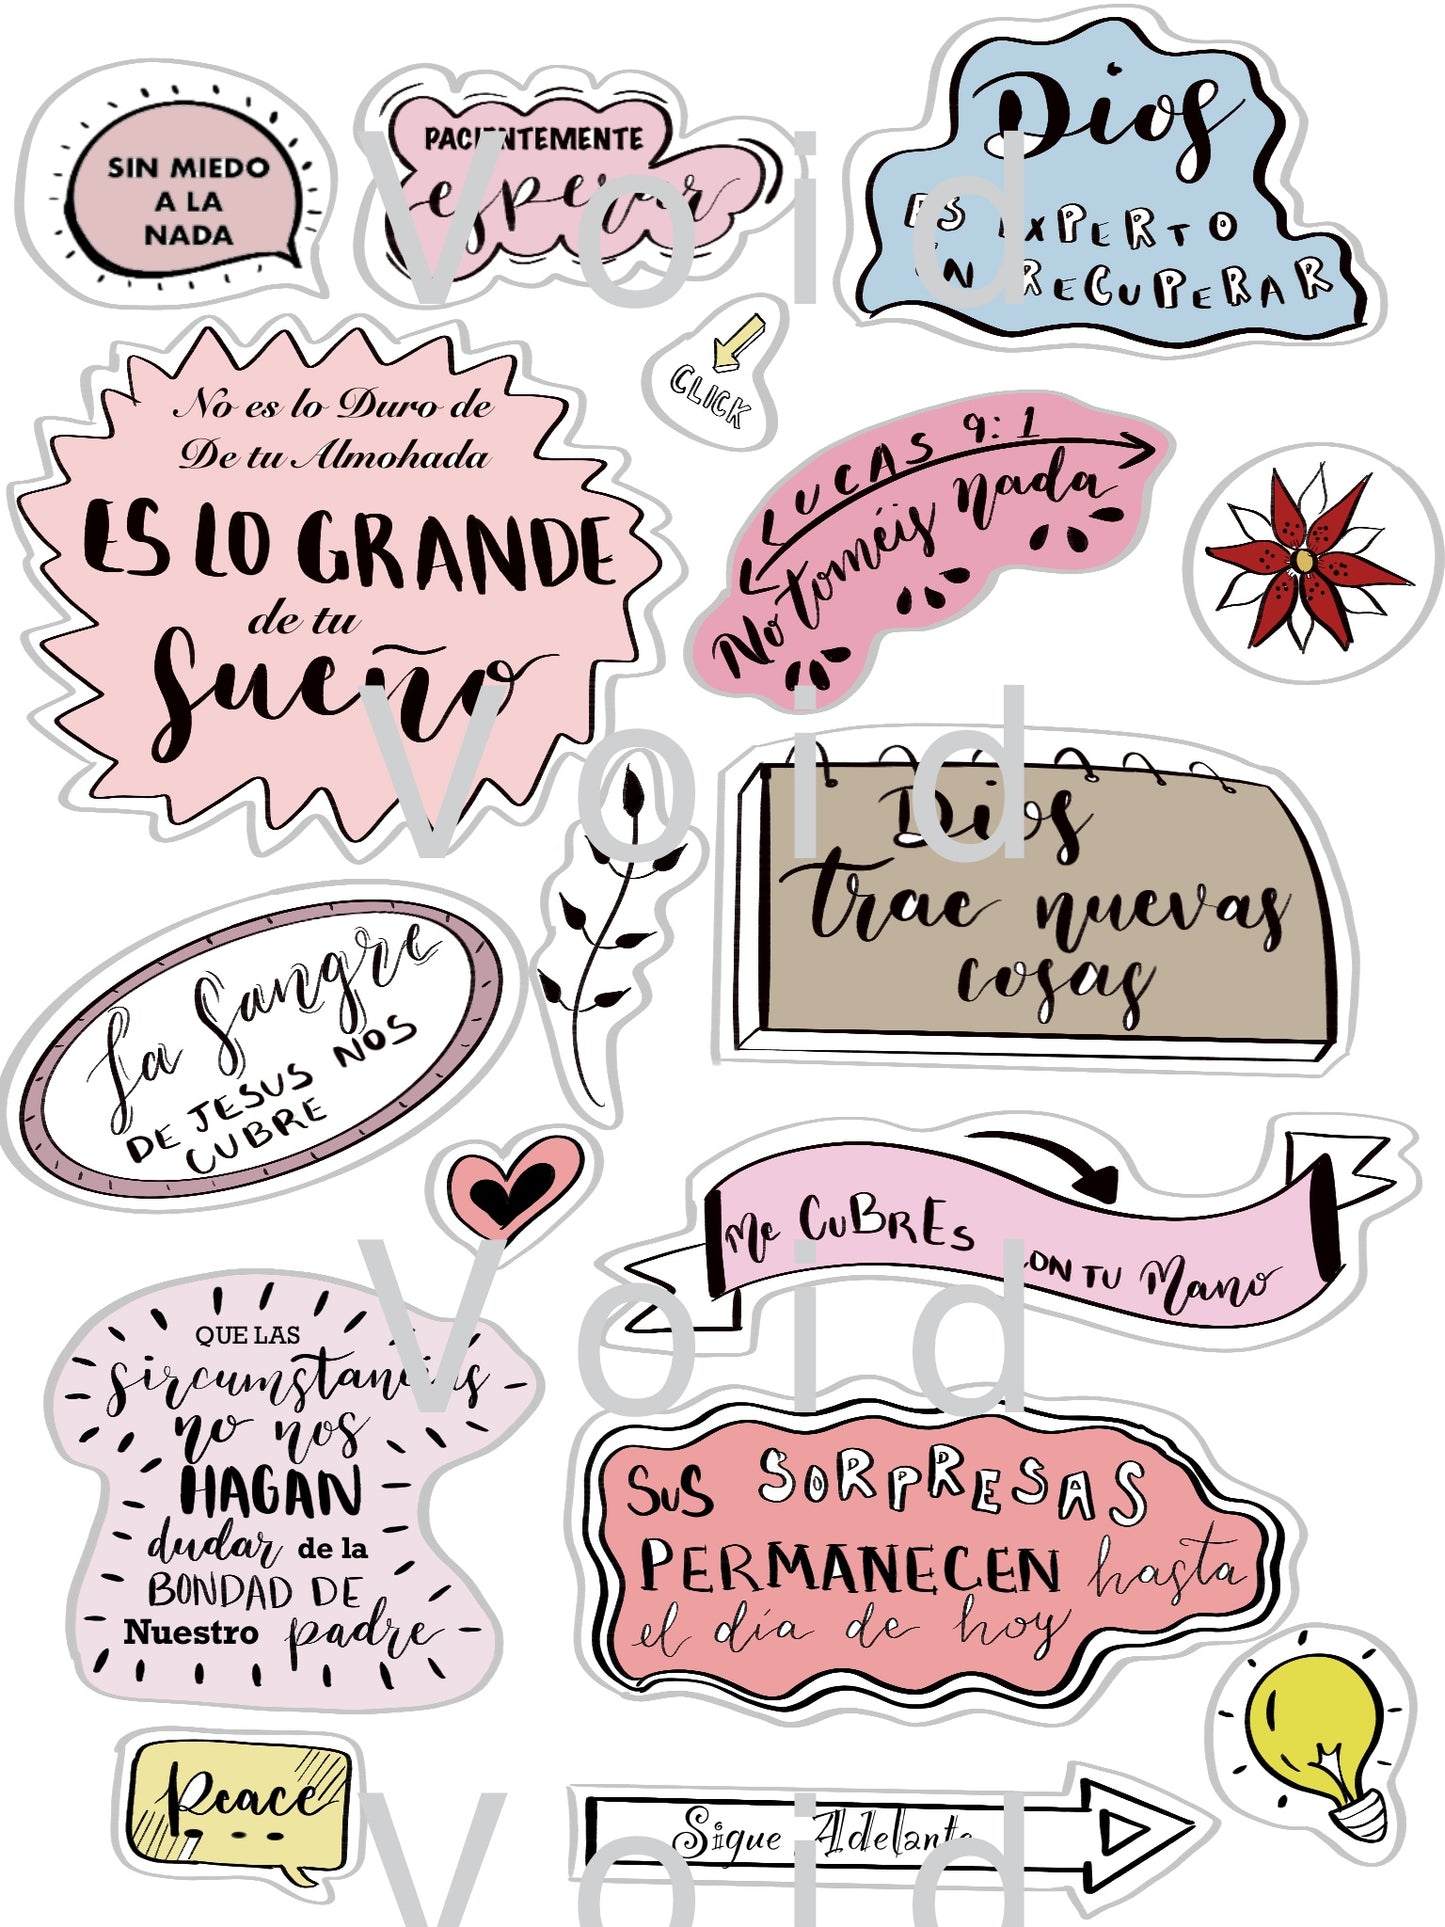 SIN MIEDO
A LA
NADA
PACIENTEMENTE
esperar
Dios
ES EXPERTO
EN RECUPERAR
CLICK
No es lo Duro de
De tu Almohada
ES LO GRANDE
de tu
Sueño
LUCAS 9:1
No toméis nada
Dios
trae nuevas
cosas
La Sangre
DE JESUS NOS
CUBRE
Me CuBREs CON TU Mano
QUE LAS
sircumstancias
no nos
HAGAN
dudar de la
BONDAD DE
Nuestro padre
SuS SORPRESAS
PERMANECEN hasta
el día de hoy
Peace
Sigue Adelante
Void
Void
Void
Void